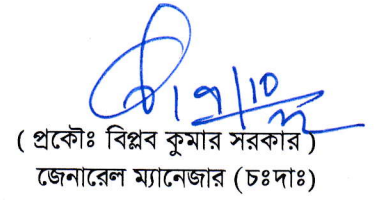 ( প্রকৌঃ বিপ্লব কুমার সরকার )
জেনারেল ম্যানেজার (চঃদাঃ)